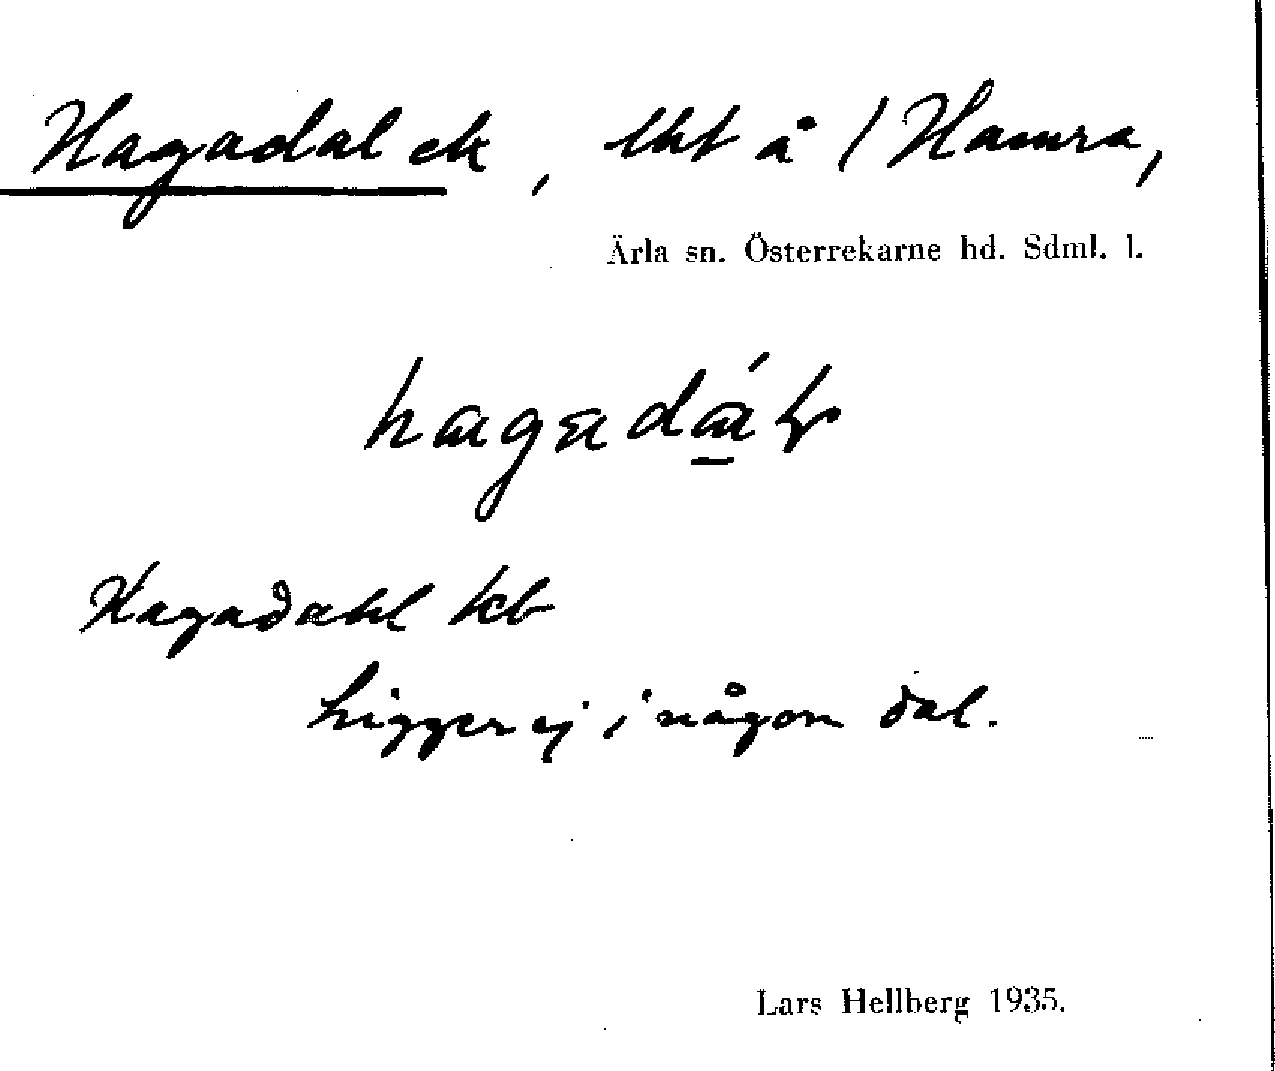 Hagadal ek, lht å / Hamra,
Ärla sn. Österrekarne hd. Sdml. l.
Hagadahl kb
Ligger ej i någon dal.
Lars Hellberg 1935.